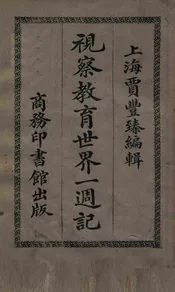 上海賈豐臻編輯
視察教育世界一週記
商務印書館出版